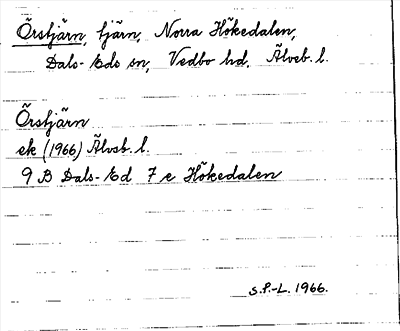 Örstjärn, tjärn, Norra Hökedalen,
Dals-Eds sn, Vedbo hd, Älvsb. l.
Örstjärn
ek (1966) Älvsb. l.
9 B Dals-Ed 7 e Hökedalen
S.P.-L. 1966.